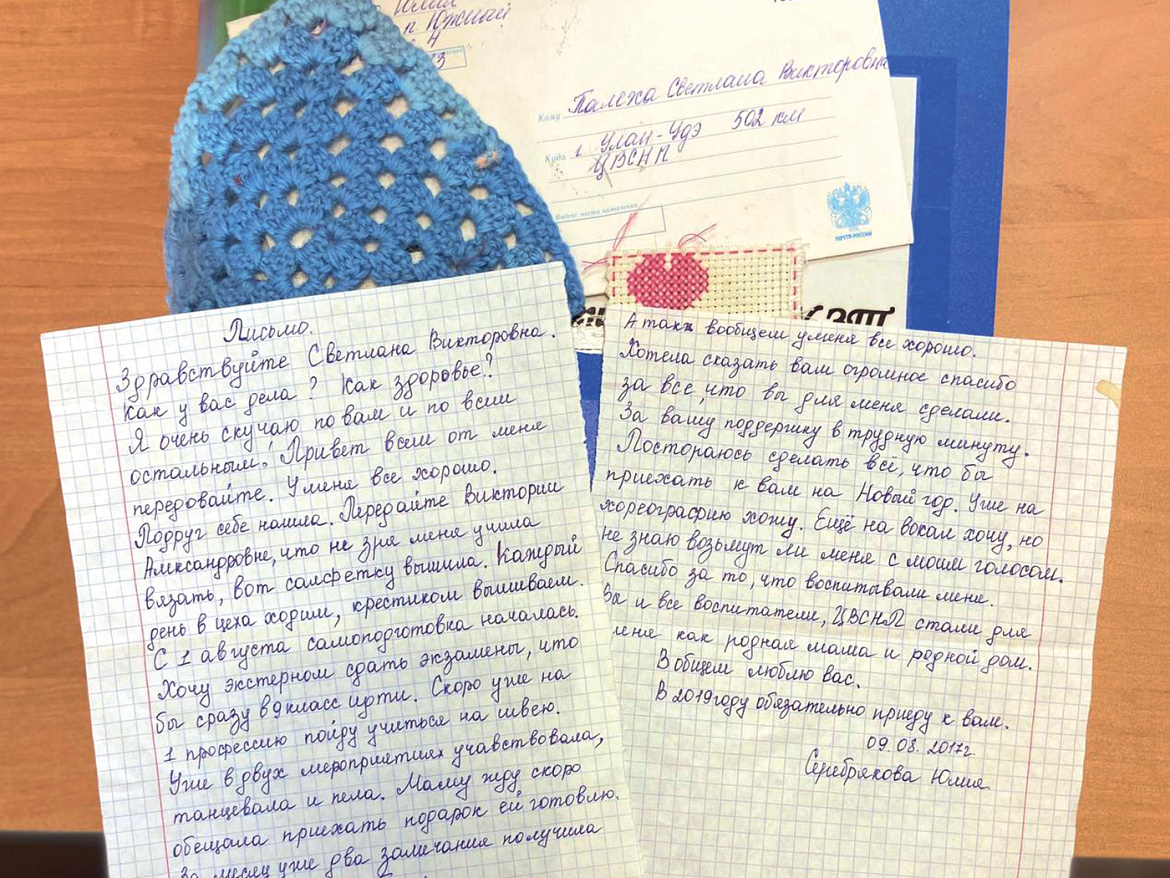 п Южный
4
3
Кому Палежа Светлана Викторовна
Куда г Улан-Удэ 502 км
ЦВСНП
Индекс места назначения
ПОЧТА РОССИИ
Письмо.
Здравствуйте Светлана Викторовна.
Как у вас дела? Как здоровье?
Я очень скучаю по вам и по всем
остальным! Привет всем от меня
передовайте. У меня все хорошо.
Подруг себе нашла. Передайте Виктории
Александровне, что не зря меня учила
вязать, вот салфетку вышила. Каждый
день в цеха ходим, крестиком вышиваем.
С 1 августа самоподготовка началась.
Хочу экстерном сдать экзамены, что
бы сразу в 9 класс идти. Скоро уже на
1 профессию пойду учиться на швею.
Уже в двух мероприятиях учавствовала,
танцевала и пела. Маму жду скоро
обещала приехать подарок ей готовлю.
За месяц уже два замечания получила
А так вообщем у меня все хорошо.
Хотела сказать вам огромное спасибо
за все, что вы для меня сделали.
За вашу поддергику в трудную минуту.
Постораюсь сделать всё, что бы
приехать к вам на Новый год. Уже на
хореографию хожу. Ещё на вокал хочу, но
не знаю возьмут ли меня с моим голосом.
Спасибо за то, что воспитывали меня.
Вы и все воспитатели, ЦВСНП стали для
меня как родная мама и родной дом.
В общем люблю вас.
В 2019 году обязательно приеду к вам.
09.08.2017г
Серебрякова Юлия